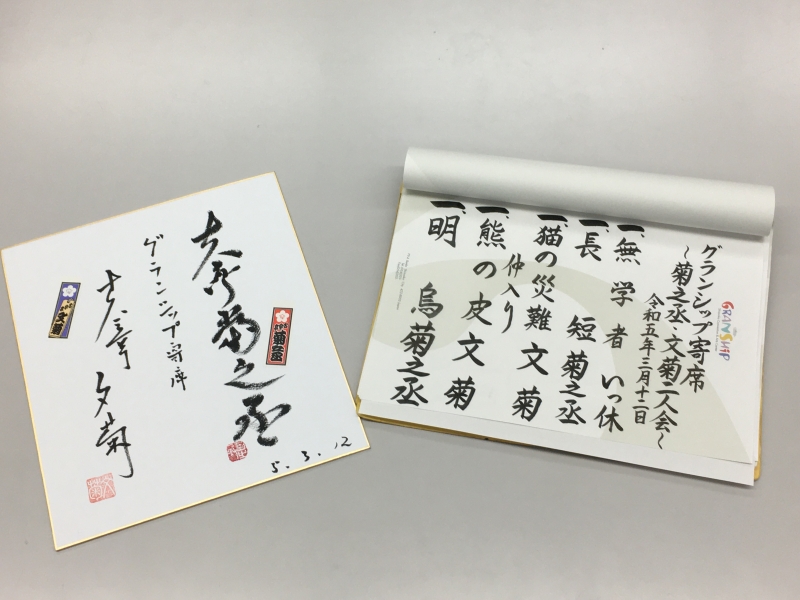 古今亭菊之丞
グランシップ寄席
古今亭文菊
5.3.12
GRANSHIP
グランシップ寄席
〜菊之丞・文菊二人会〜
令和五年三月十二日
一、無学者 いっ休
一、長短 菊之丞
一、猫の災難 文菊
仲入り
一、熊の皮 文菊
一、明烏 菊之丞